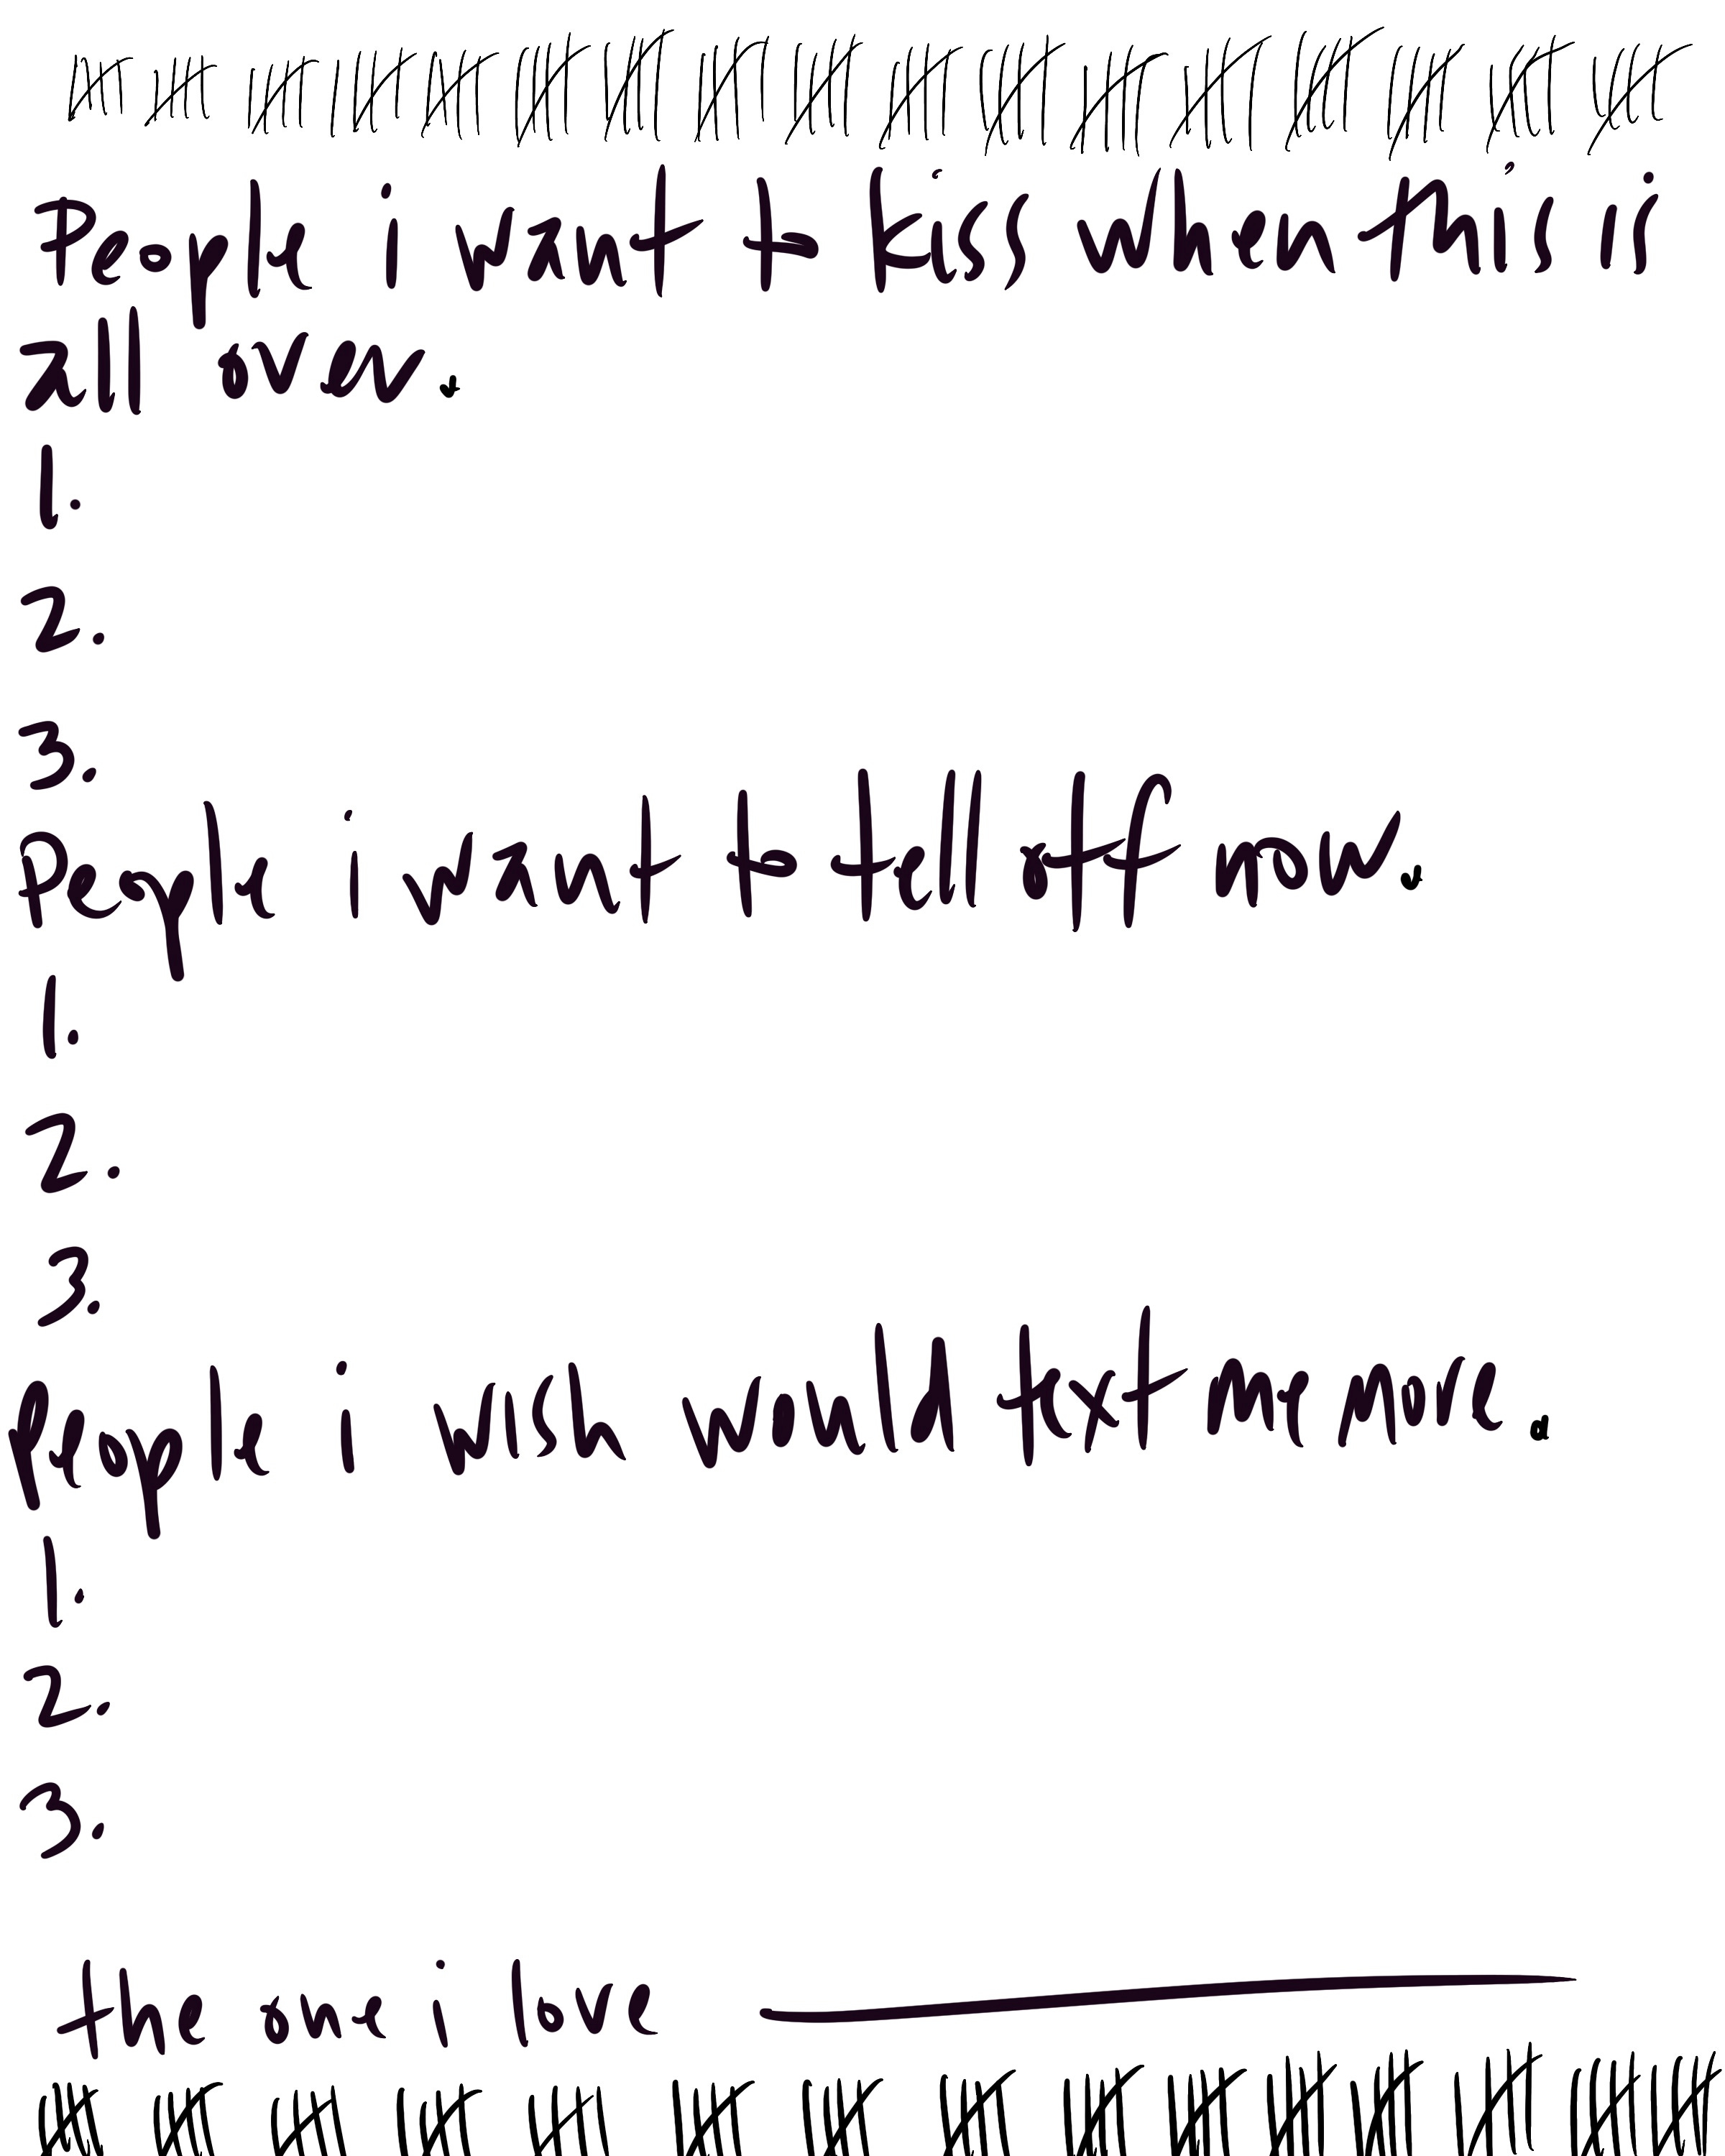 People i want to kiss when this is
all over.
1.
2.
3.
People i want to tell off now.
1.
2.
3.
people i wish would text me more.
1.
2.
3.
the one i love